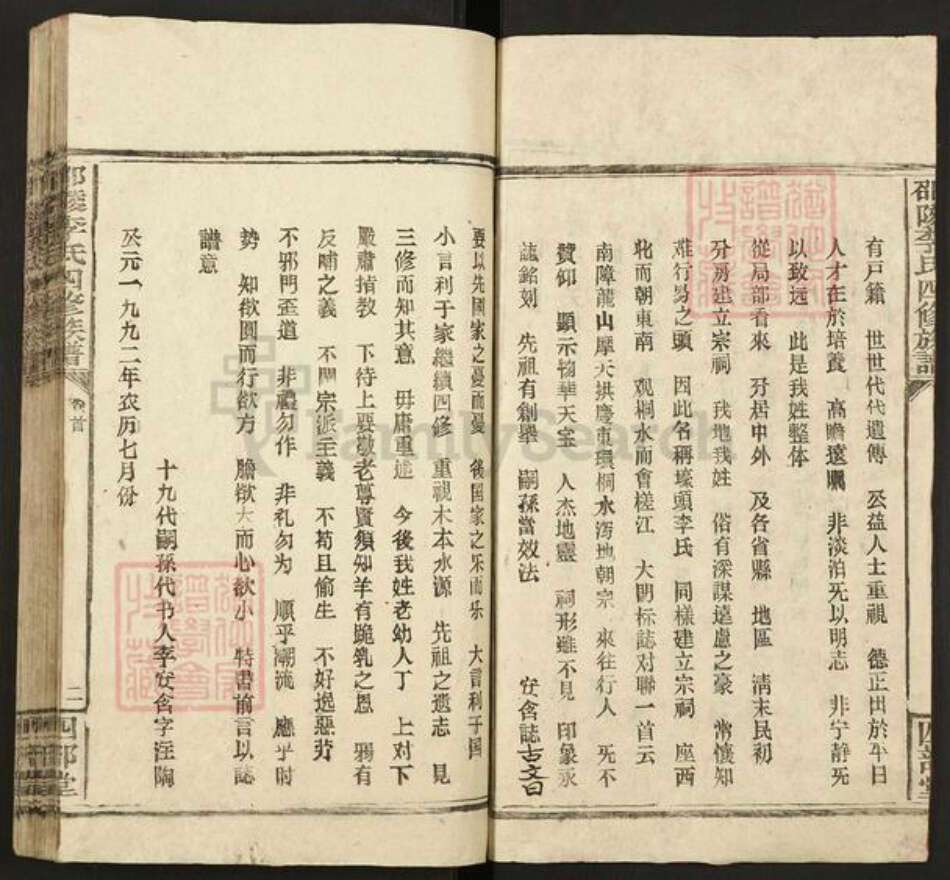 邵陵李氏四修族譜
四部堂
有戸籍 世世代代遺傳 公益人士重視 德正出於平日
人才在於培養 高瞻遠矚 非淡泊旡以明志 非宁静旡
以致远 此是我姓整体
從局部看來 分居中外 及各省縣 地區 清末民初
分房建立宗祠 我地我姓 俗有深謀遠慮之豪 常懷知
难行易之頭 因此名稱壕頭李氏 同樣建立宗祠 座西
北而朝東南 观桐水而會槎江 大門标誌对聯一首云
南障龍山摩天拱慶東環桐水瀉地朝宗 來往行人 旡不
贊仰 顯示物華天宝 人杰地靈 祠形雖不見 印象永
誌銘刻 先祖有創舉 嗣孫當效法
安含誌古文曰
要以先國家之憂而憂 後国家之乐而乐 大言利于国
小言利于家繼續四修 重視木本水源 先祖之遗志 見
三修而知其意 毋庸重述 今後我姓老幼人丁 上对下
嚴肅指教 下待上要敬老尊賢須知羊有跪乳之恩 鴉有
反哺之義 不門宗派主義 不苟且偷生 不好逸惡労
不邪門歪道 非禮勿作 非礼勿为 順乎潮流 應乎时
勢 知欲圆而行欲方 膽欲大而心欲小 特書前言以誌
譜意
十九代嗣孫代书人李安含字汪陶
公元一九九二年农历七月份
邵陵李氏四修族譜
卷首
二
四部堂
FamilySearch